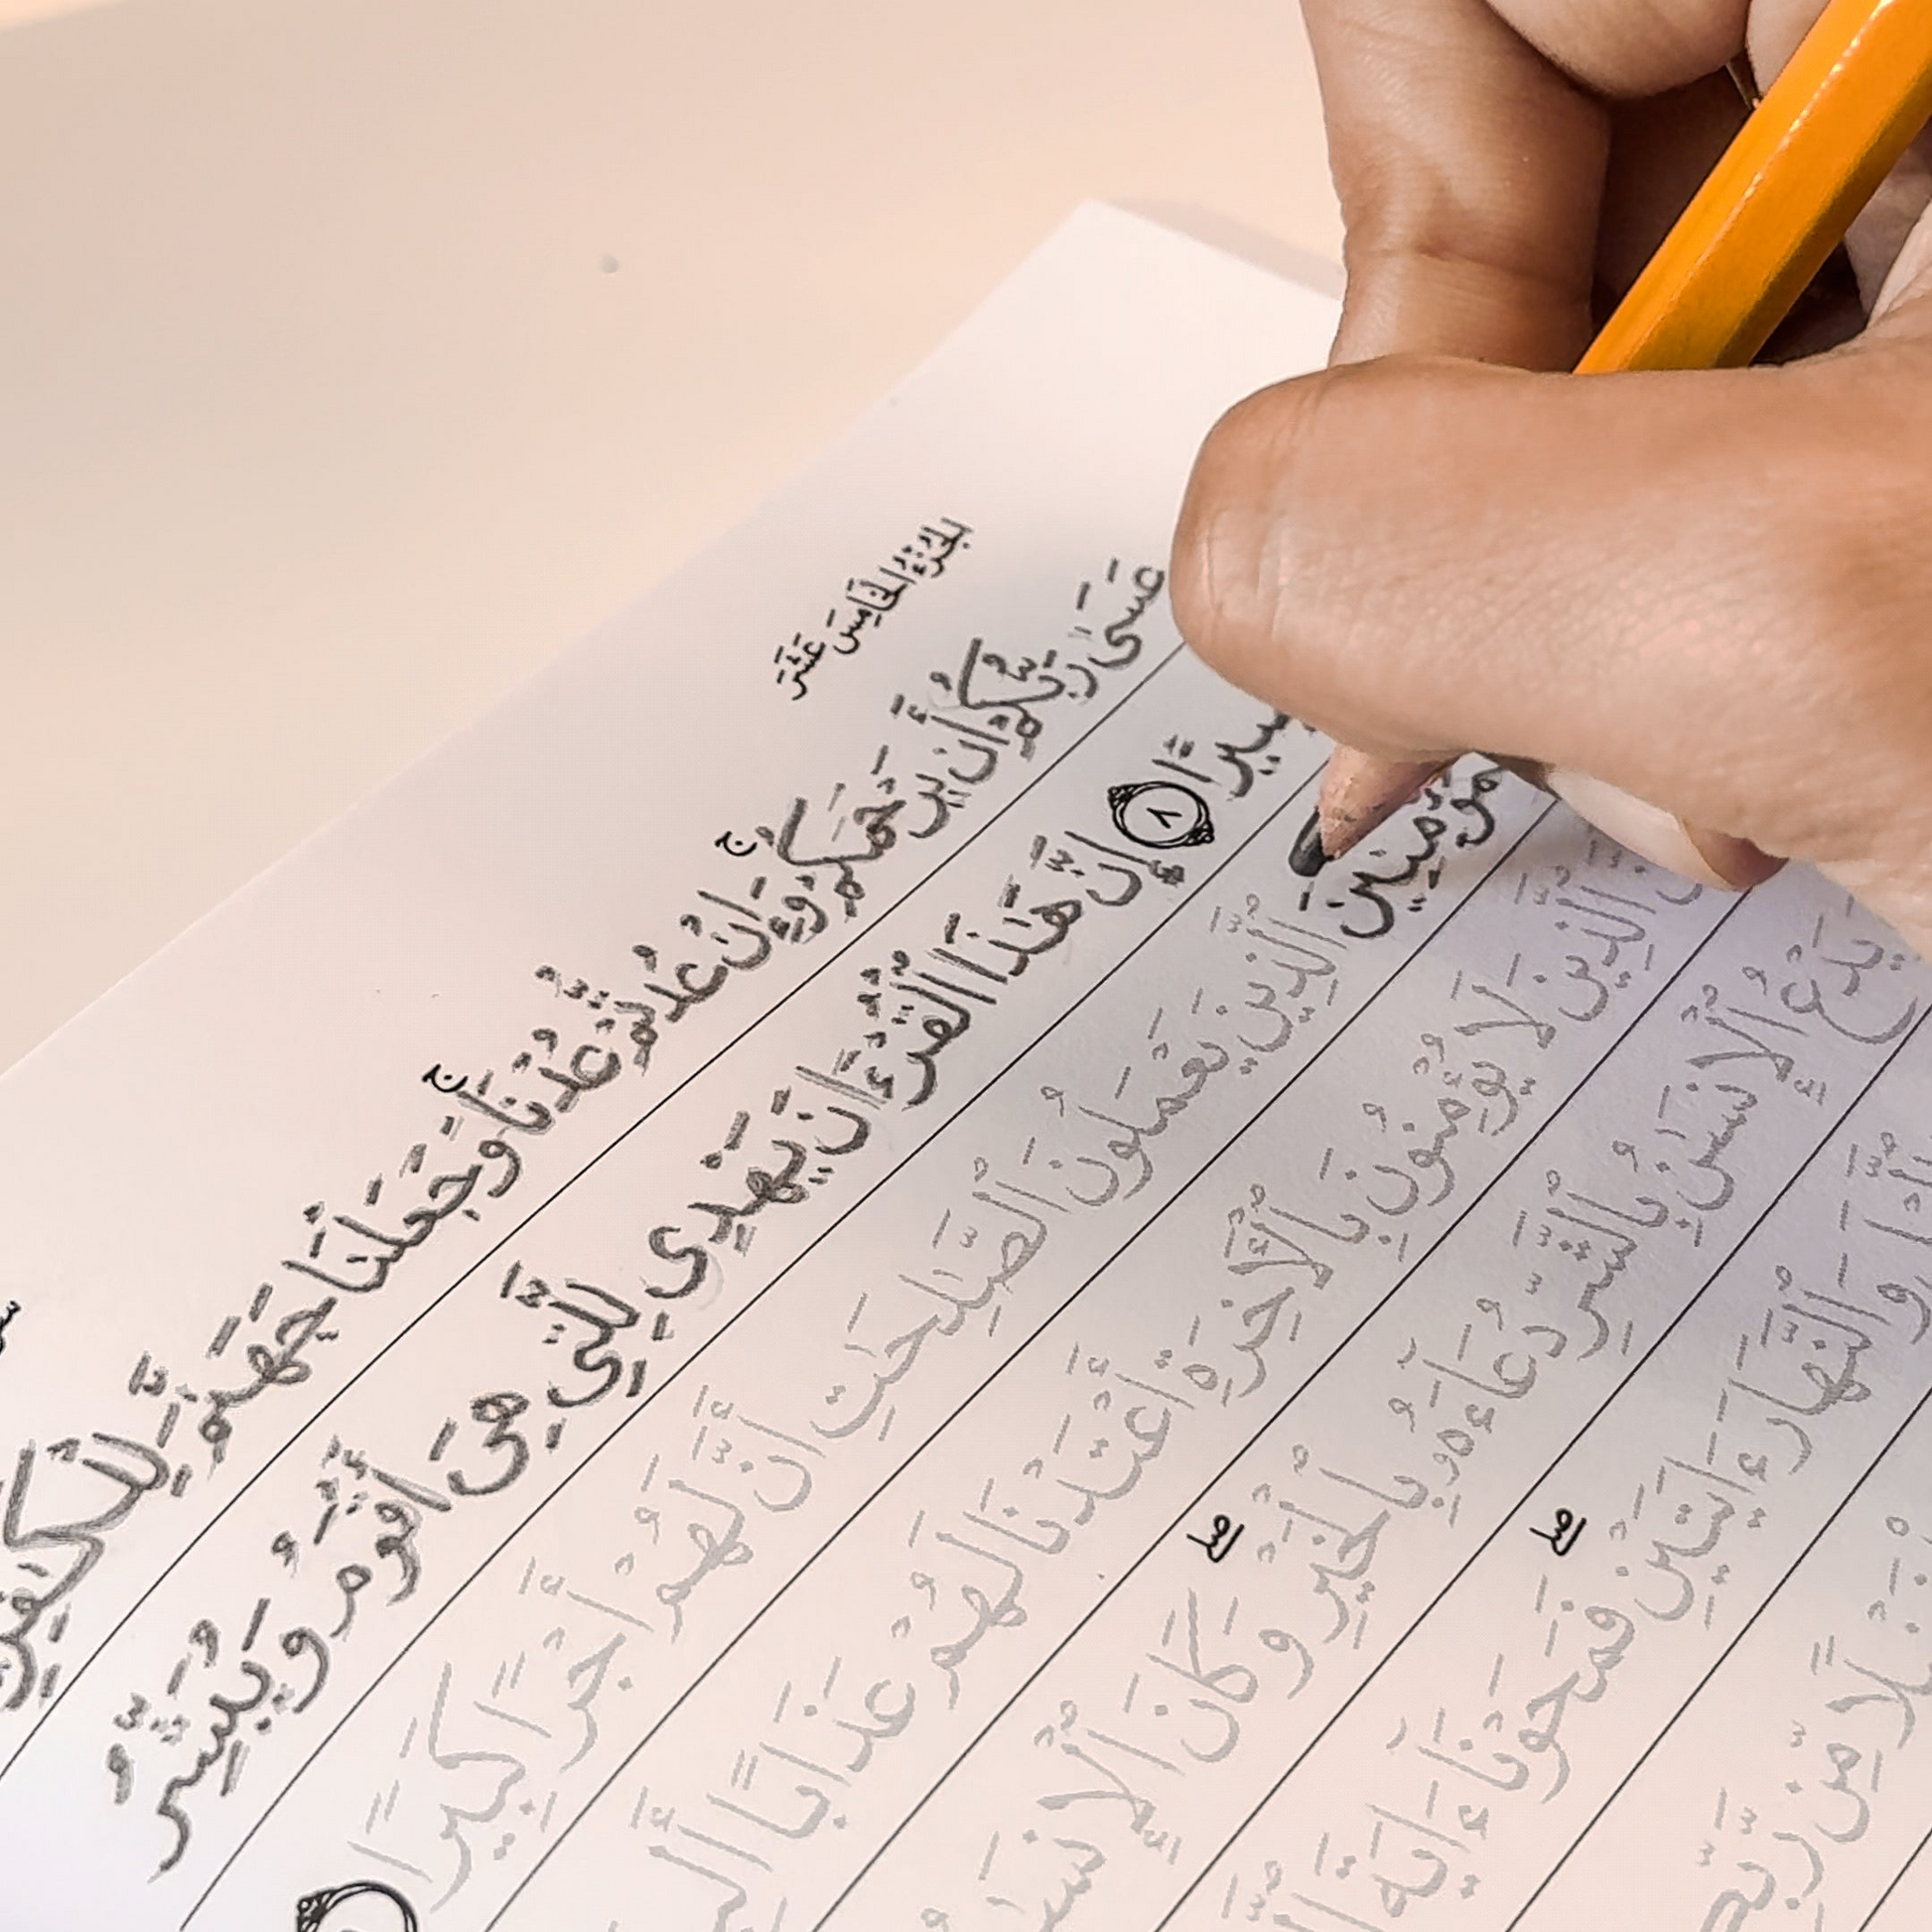 الجُزْءُ الخَامِسَ عَشَرَ
عَسَىٰ رَبُّكُمْ أَن يَرْحَمَكُمْ ۚ وَإِنْ عُدتُّمْ عُدْنَا ۘ وَجَعَلْنَا جَهَنَّمَ لِلْكَٰفِرِ
صِيرًا ٨ إِنَّ هَٰذَا الْقُرْءَانَ يَهْدِي لِلَّتِي هِيَ أَقْوَمُ وَيُبَشِّرُ
مُؤْمِنِينَ الَّذِينَ يَعْمَلُونَ الصَّٰلِحَٰتِ أَنَّ لَهُمْ أَجْرًا كَبِيرًا
الَّذِينَ لَا يُؤْمِنُونَ بِالْءَاخِرَةِ أَعْتَدْنَا لَهُمْ عَذَابًا
يَدْعُ الْإِنسَٰنُ بِالشَّرِّ دُعَاءَهُۥ بِالْخَيْرِ ۖ وَكَانَ الْإِنسَٰ
وَالنَّهَارَ ءَايَتَيْنِ ۖ فَمَحَوْنَا ءَايَةَ
فَضْلًا مِّن رَّبِّ